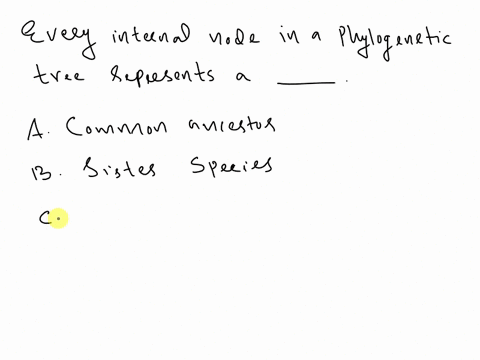 Every internal node in a Phylogenetic
tree represents a ____.
A. Common ancestor
B. Sister Species
C.